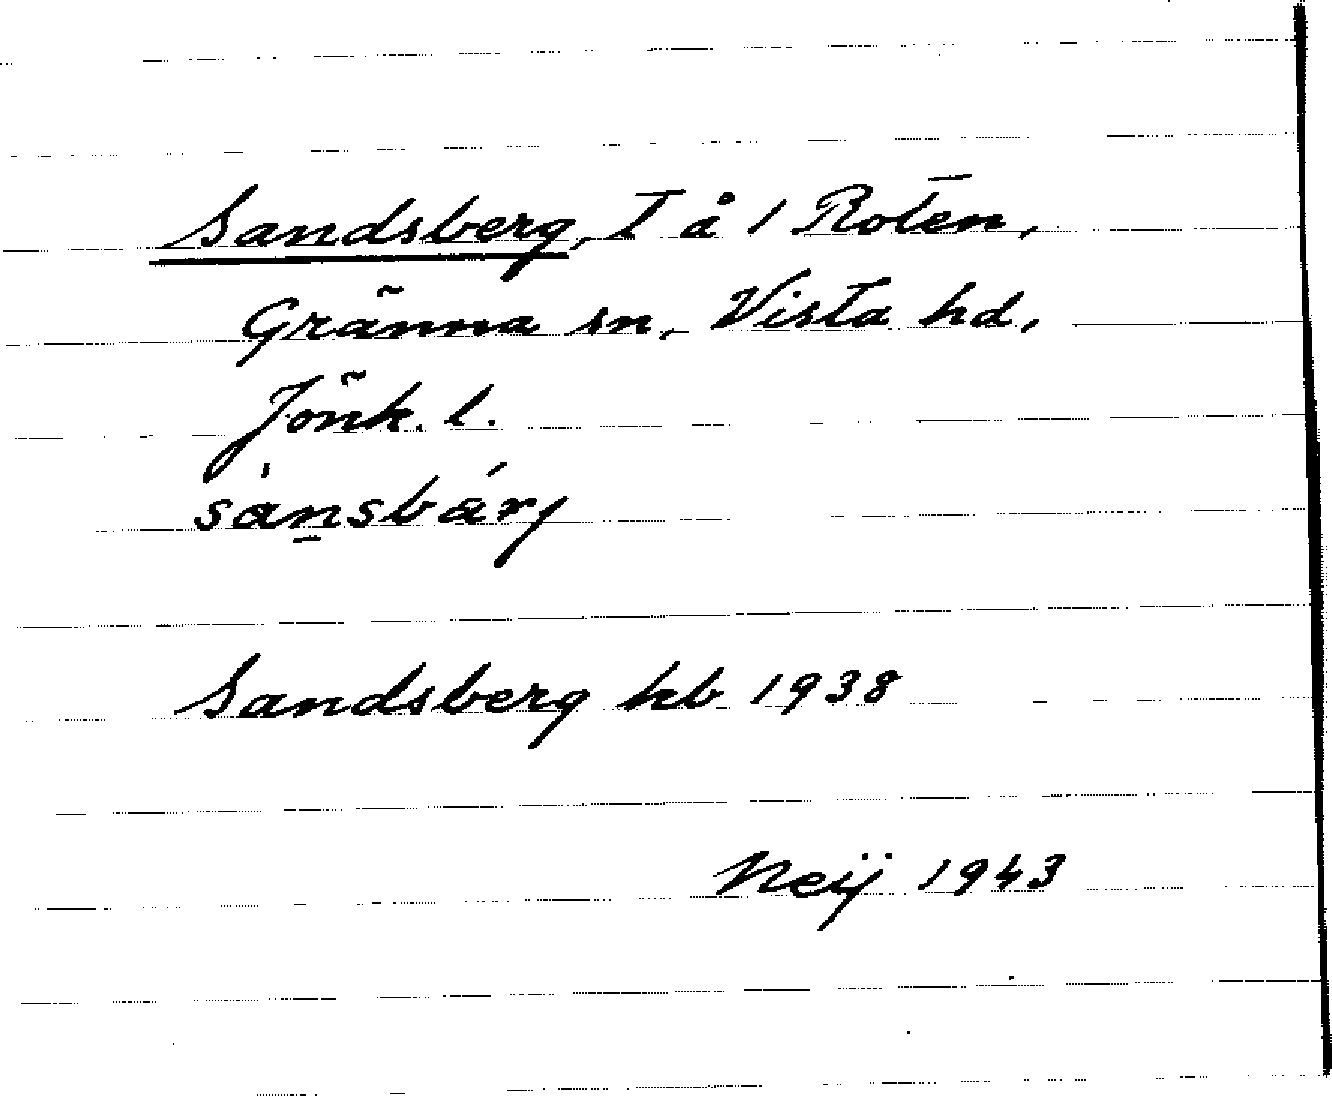 Sandsberg, T å 1 Roten,
Gränna sn, Vista hd,
Jönk. l.
sànsbárj
Sandsberg kb 1938
Neij 1943